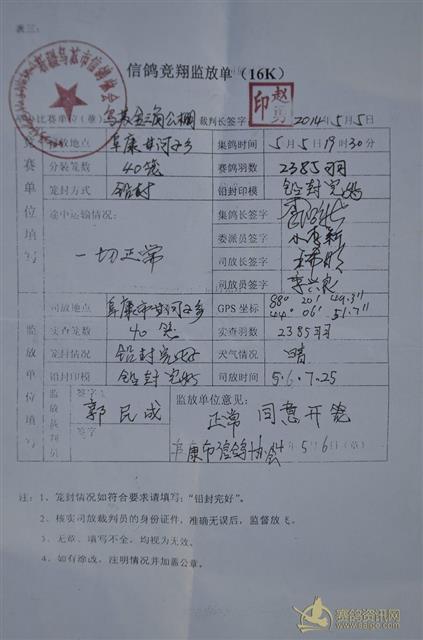 表三:
信鸽竞翔监放单(16K)
比赛单位(章) 乌苏金三角公棚 裁判长签字 2014年5月5日
司放地点 阜康 河子乡 集鸽时间 5月5日19时30分
分装笼数 40笼 赛鸽羽数 2385羽
笼封方式 铅封 铅封印模 铅封完好
途中运输情况: 一切正常 集鸽长签字
委派员签字
司放长签字
司放员签字
赛单位填写
司放地点 阜康市 河子乡 GPS坐标 88° 20′ 49.3″
44° 06′ 51.7″
实查笼数 40笼 实查羽数 2385羽
笼封情况 铅封完好 天气情况 晴
铅封印模 铅封完好 司放时间 5.6.7.25
监放单位填写
监放裁判员 签字 郭民成 监放单位意见:
正常 同意开笼
签字 阜康市信鸽协会 年5月6日(章)
注:1、笼封情况如符合要求请填写:“铅封完好”。
2、核实司放裁判员的身份证件,准确无误后,监督放飞。
3、无章、填写不全、均视为无效。
4、如有涂改,注明情况并加盖公章。
赛鸽资讯网
www.saige.com